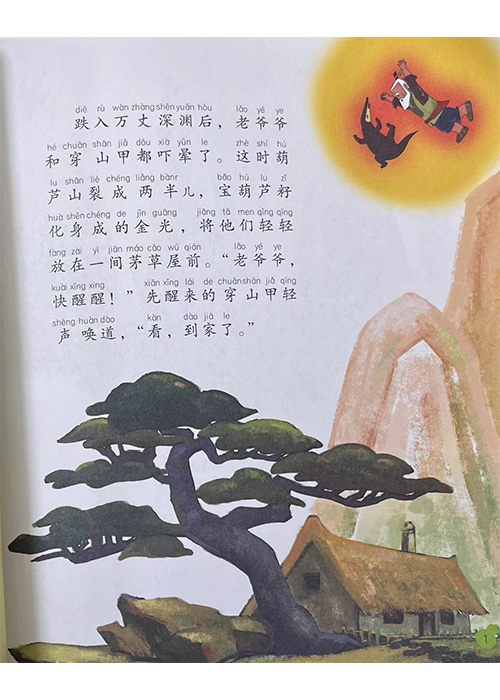 diē rù wàn zhàng shēn yuān hòu lǎo yé ye
跌入万丈深渊后，老爷爷
hé chuān shān jiǎ dōu xià yūn le zhè shí hú
和穿山甲都吓晕了。这时葫
lu shān liè chéng liǎng bànr bǎo hú lu zǐ
芦山裂成两半儿，宝葫芦籽
huà shēn chéng de jīn guāng jiāng tā men qīng qīng
化身成的金光，将他们轻轻
fàng zài yì jiān máo cǎo wū qián lǎo yé ye
放在一间茅草屋前。“老爷爷，
kuài xǐng xing xiān xǐng lái de chuān shān jiǎ qīng
快醒醒！”先醒来的穿山甲轻
shēng huàn dào kàn dào jiā le
声唤道，“看，到家了。”
1